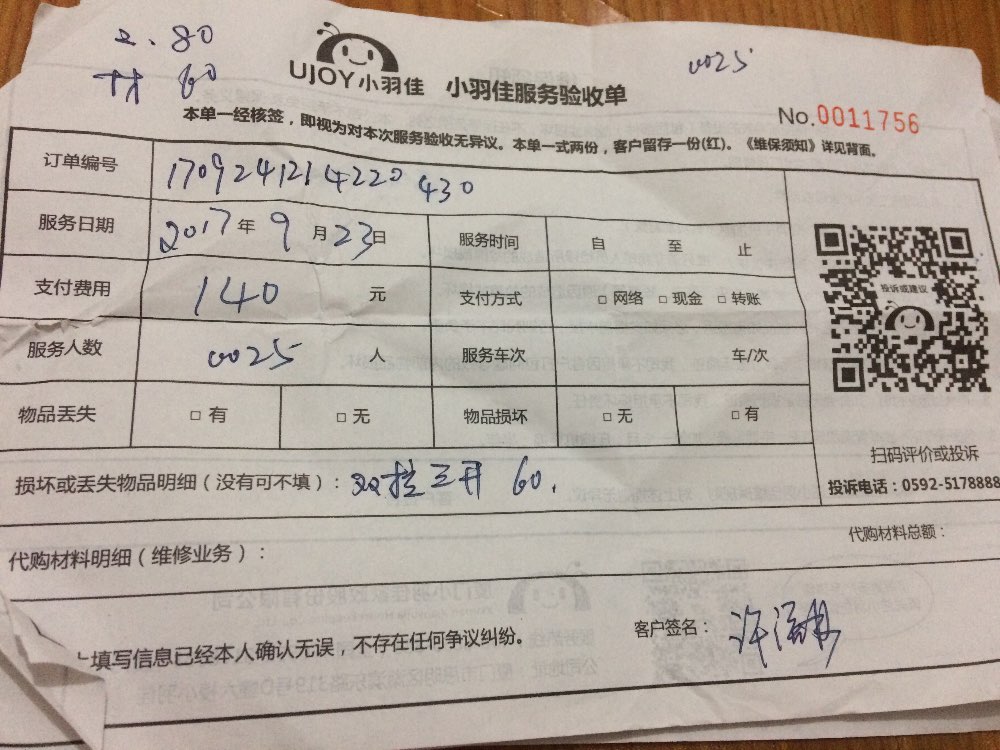 工. 80
材 60
0025
UJOY小羽佳 小羽佳服务验收单
No.0011756
本单一经核签，即视为对本次服务验收无异议。本单一式两份，客户留存一份(红)。《维保须知》详见背面。
订单编号 1709241214220430
服务日期 2017年9月23日 服务时间 自 至 止
支付费用 140 元 支付方式 □ 网络 □ 现金 □ 转账
服务人数 0025 人 服务车次 车/次
物品丢失 □ 有 □ 无 物品损坏 □ 无 □ 有
投诉或建议
扫码评价或投诉
投诉电话：0592-5178888
损坏或丢失物品明细（没有可不填）： 双控三开 60.
代购材料明细（维修业务）： 代购材料总额：
填写信息已经本人确认无误，不存在任何争议纠纷。 客户签名：